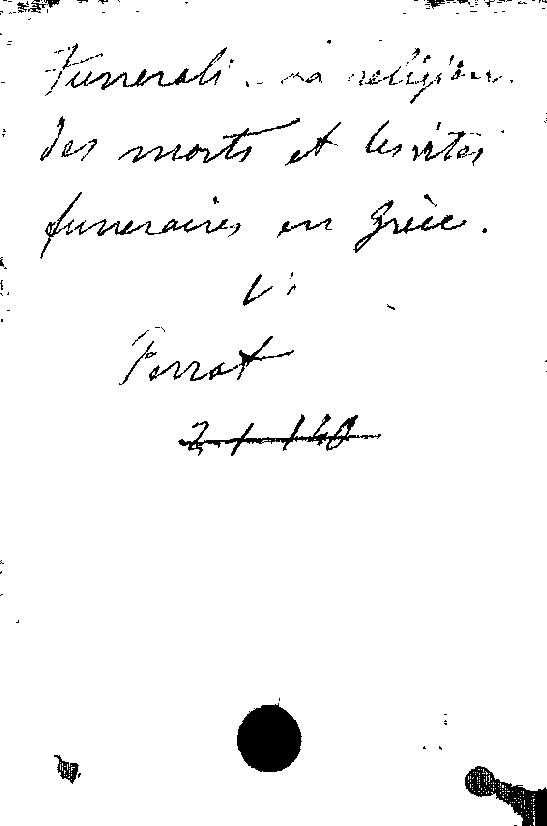 Funerali. La religion
des morts et les rites
funeraires en Grèce.
V:
Perrot
2. 1. 140